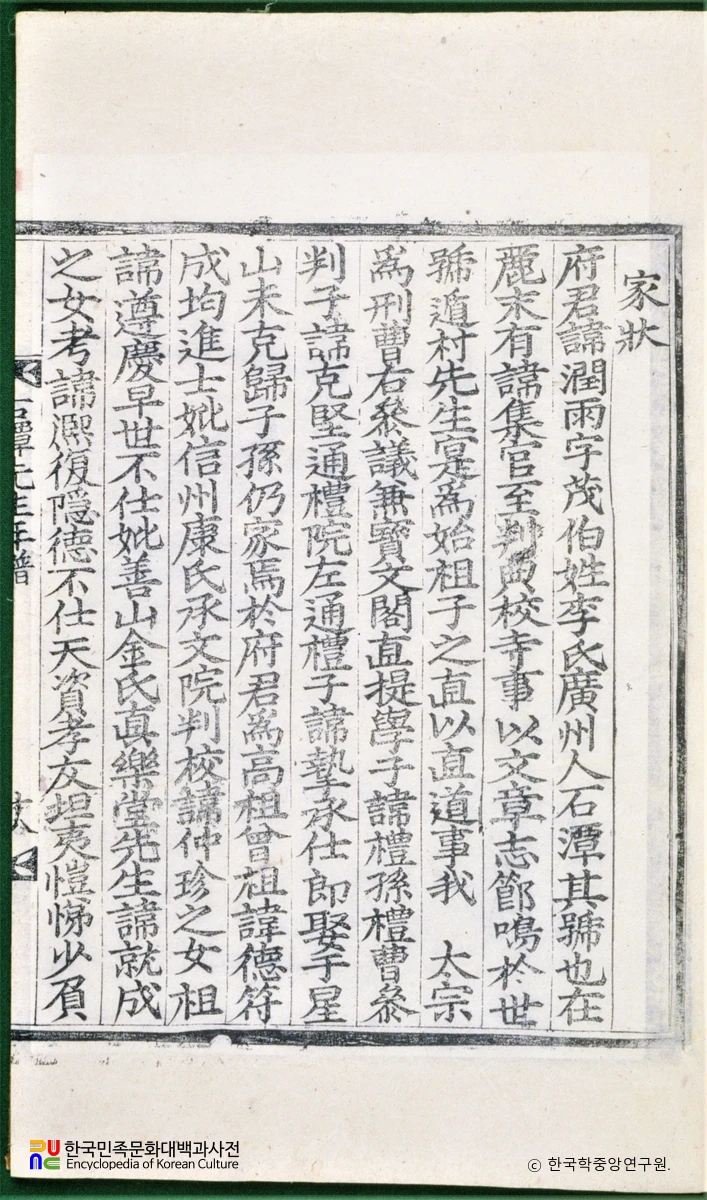 家狀
府君諱潤雨字茂伯姓李氏廣州人石潭其號也在
麗末有諱集官至判典校寺事以文章志節鳴於世
號遁村先生寔爲始祖子之直以直道事我 太宗
爲刑曹右叅議兼寶文閣直提學子諱禮孫禮曹叅
判子諱克堅通禮院左通禮子諱摯承仕郞娶于星
山未克歸子孫仍家焉於府君爲高祖曾祖諱德符
成均進士妣信州康氏承文院判校諱仲珍之女祖
諱遵慶早世不仕妣善山金氏眞樂堂先生諱就成
之女考諱熙復隱德不仕天資孝友坦夷愷悌少負
石潭先生年譜
한국민족문화대백과사전
Encyclopedia of Korean Culture
© 한국학중앙연구원.